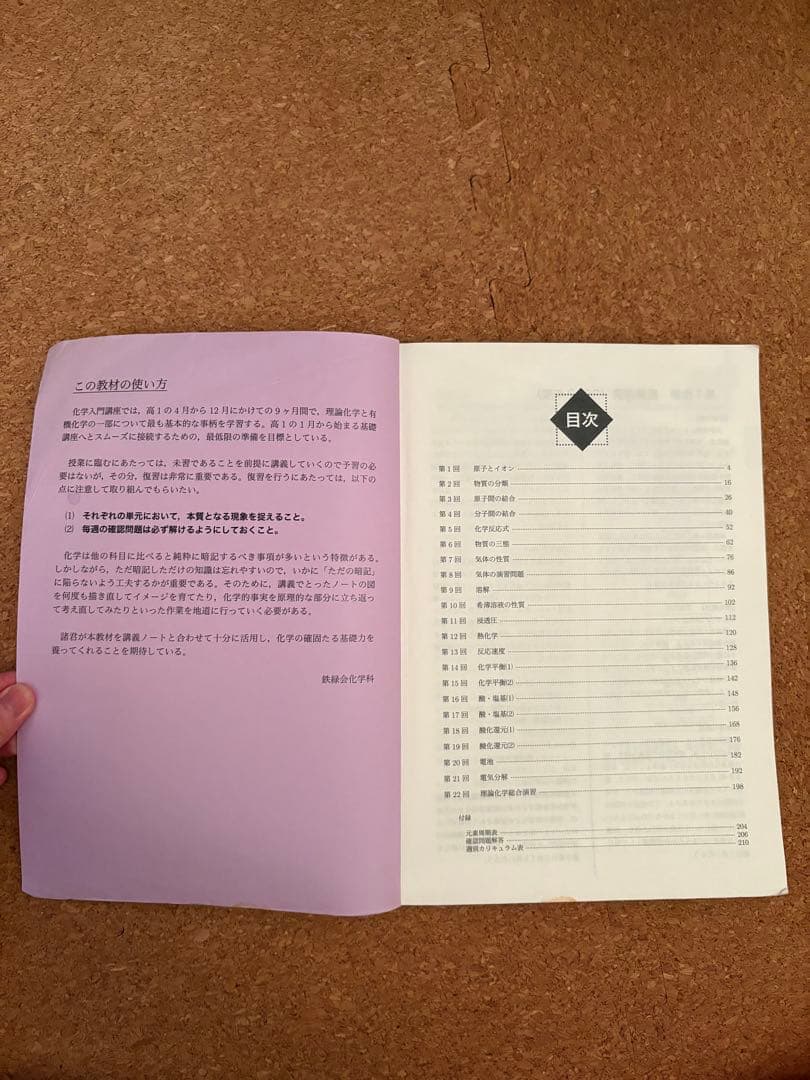 この教材の使い方
化学入門講座では，高1の4月から12月にかけての9ヶ月間で，理論化学と有
機化学の一部について最も基本的な事柄を学習する。高1の1月から始まる基礎
講座へとスムーズに接続するための，最低限の準備を目標としている。
授業に臨むにあたっては，未習であることを前提に講義していくので予習の必
要はないが，その分，復習は非常に重要である。復習を行うにあたっては，以下の
点に注意して取り組んでもらいたい。
(1) それぞれの単元において，本質となる現象を捉えること。
(2) 毎週の確認問題は必ず解けるようにしておくこと。
化学は他の科目に比べると純粋に暗記するべき事項が多いという特徴がある。
しかしながら，ただ暗記しただけの知識は忘れやすいので，いかに「ただの暗記」
に陥らないよう工夫するかが重要である。そのために，講義でとったノートの図
を何度も描き直してイメージを育てたり，化学的事実を原理的な部分に立ち返っ
て考え直してみたりといった作業を地道に行っていく必要がある。
諸君が本教材を講義ノートと合わせて十分に活用し，化学の確固たる基礎力を
養ってくれることを期待している。
鉄緑会化学科
目次
第1回 原子とイオン 4
第2回 物質の分類 16
第3回 原子間の結合 26
第4回 分子間の結合 40
第5回 化学反応式 52
第6回 物質の三態 62
第7回 気体の性質 76
第8回 気体の演習問題 86
第9回 溶解 92
第10回 希薄溶液の性質 102
第11回 浸透圧 112
第12回 熱化学 120
第13回 反応速度 128
第14回 化学平衡(1) 136
第15回 化学平衡(2) 142
第16回 酸・塩基(1) 148
第17回 酸・塩基(2) 156
第18回 酸化還元(1) 168
第19回 酸化還元(2) 176
第20回 電池 182
第21回 電気分解 192
第22回 理論化学総合演習 198
付録
元素周期表 204
確認問題解答 206
週別カリキュラム表 210